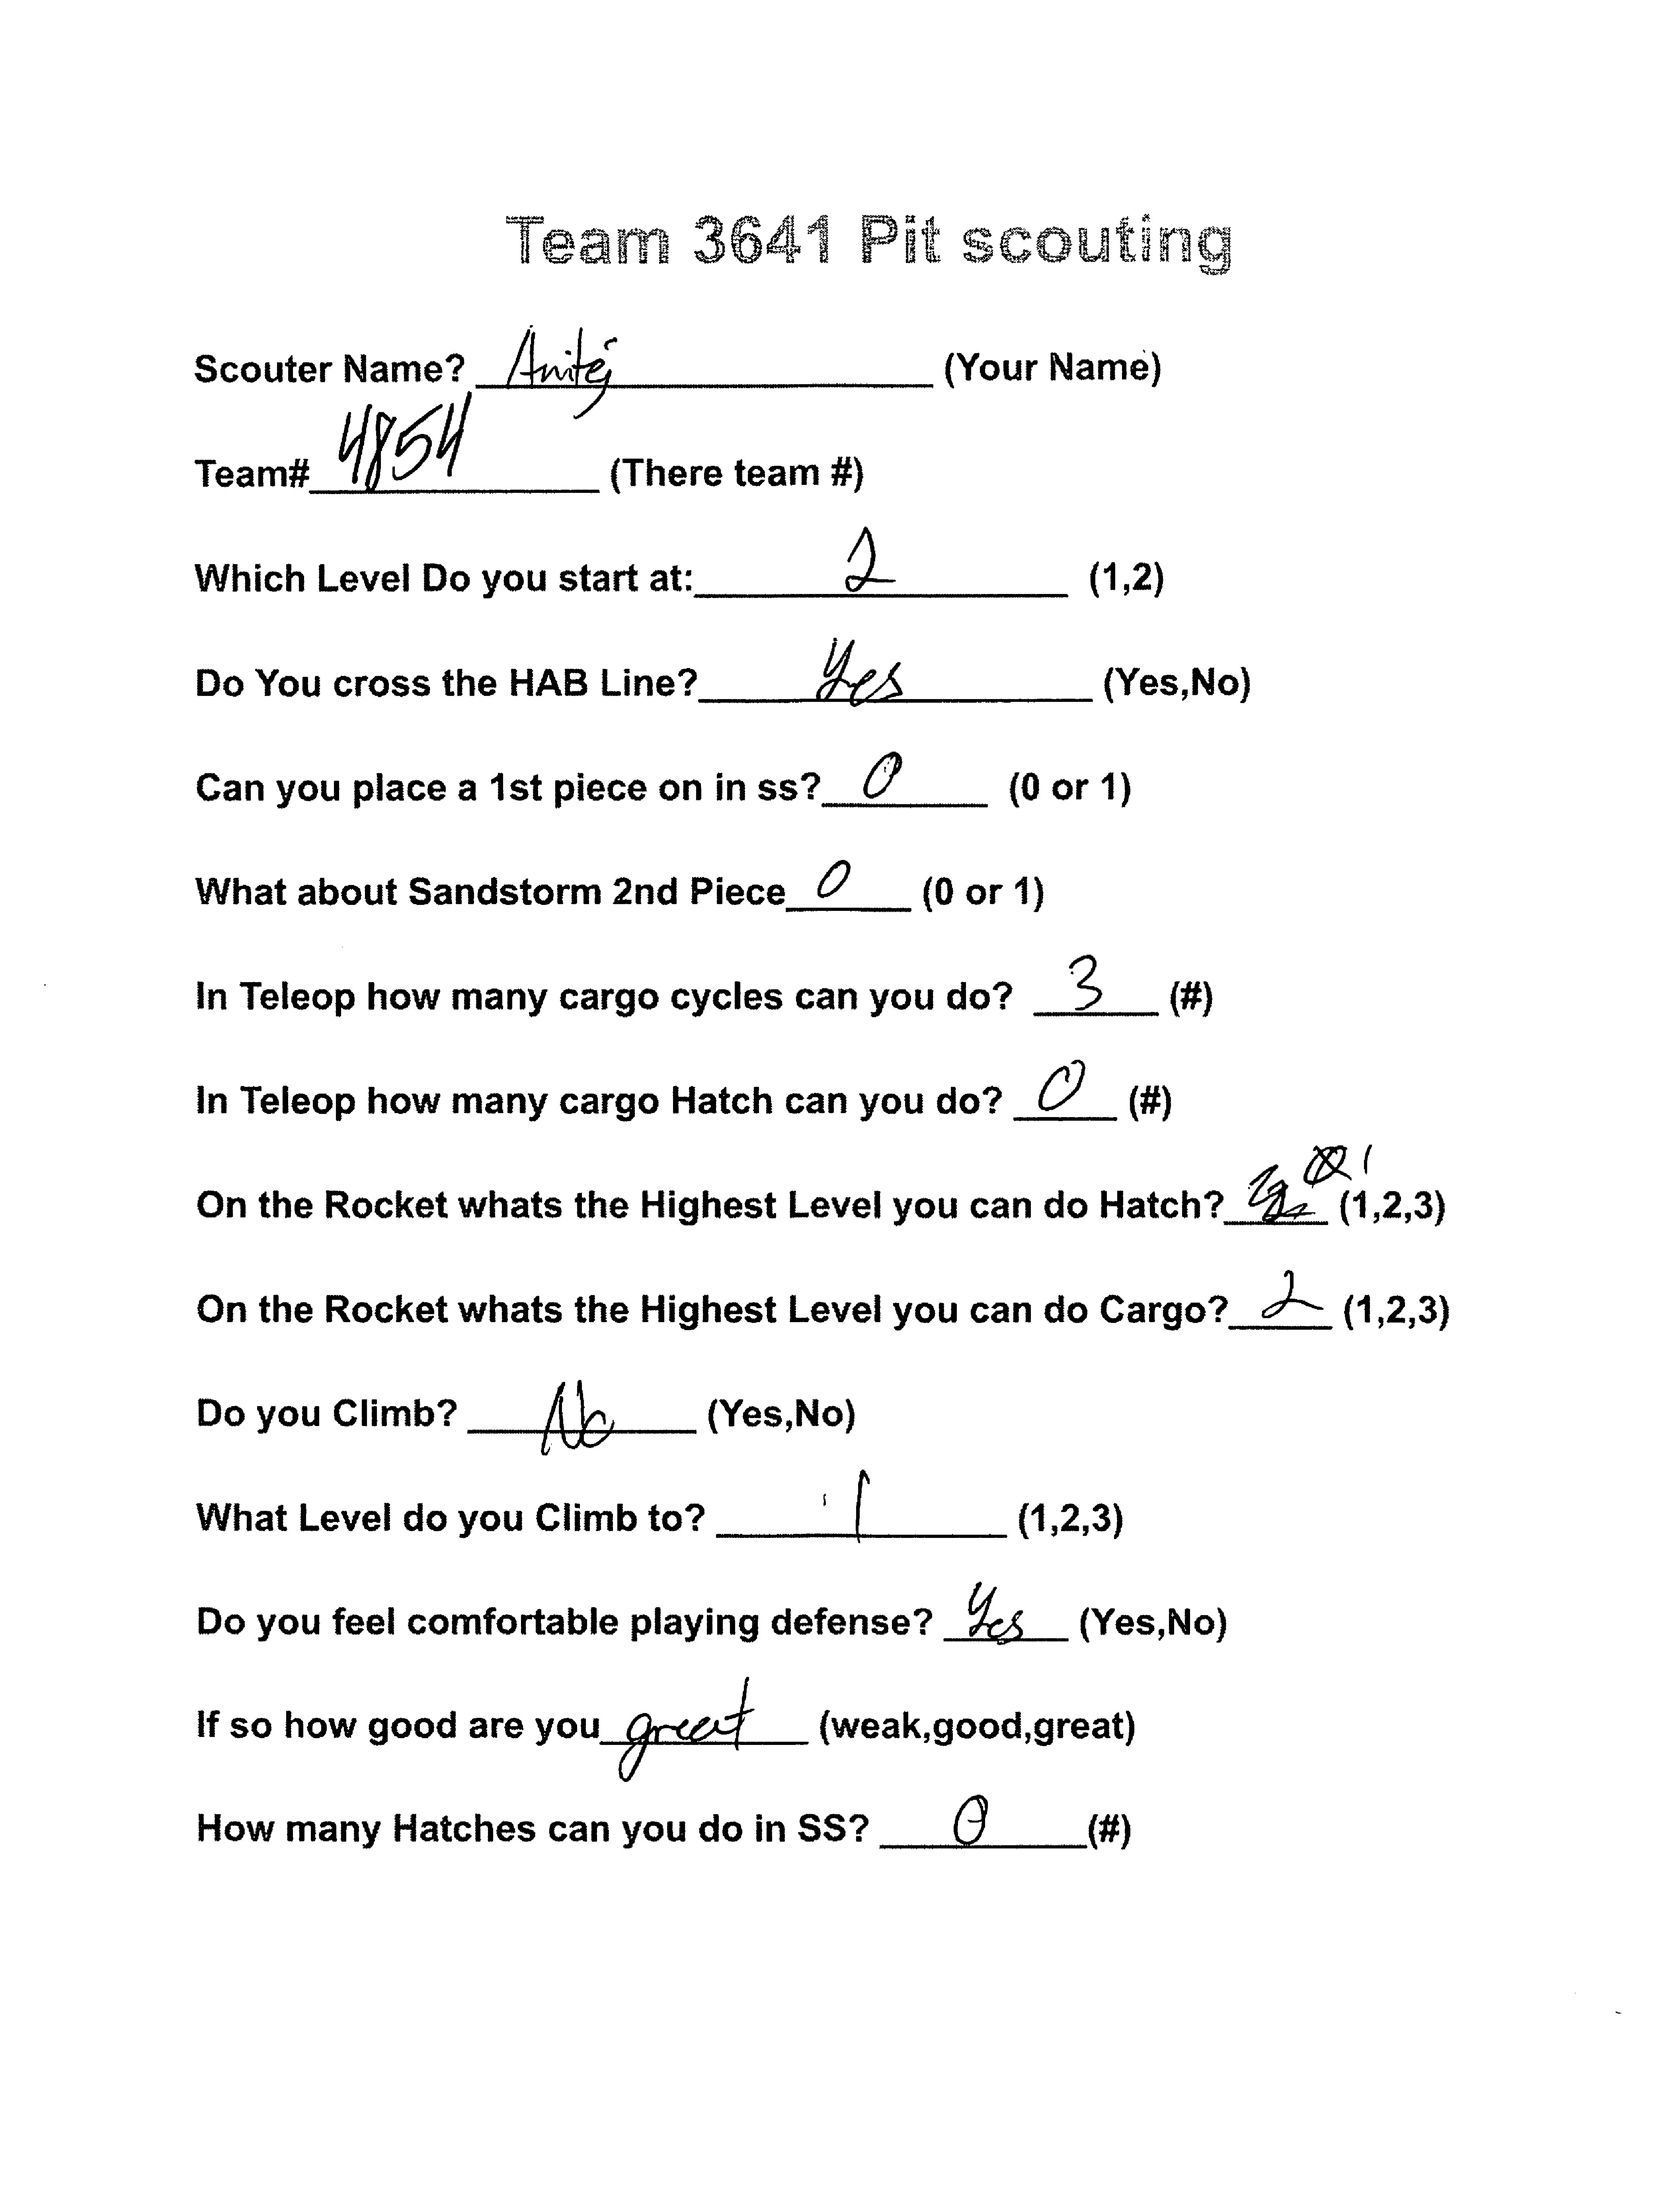 Team 3641 Pit scouting
Scouter Name? Anitej (Your Name)
Team# 4854 (There team #)
Which Level Do you start at: 2 (1,2)
Do You cross the HAB Line? Yes (Yes,No)
Can you place a 1st piece on in ss? 0 (0 or 1)
What about Sandstorm 2nd Piece 0 (0 or 1)
In Teleop how many cargo cycles can you do? 3 (#)
In Teleop how many cargo Hatch can you do? 0 (#)
On the Rocket whats the Highest Level you can do Hatch? 1 (1,2,3)
On the Rocket whats the Highest Level you can do Cargo? 2 (1,2,3)
Do you Climb? No (Yes,No)
What Level do you Climb to? 1 (1,2,3)
Do you feel comfortable playing defense? Yes (Yes,No)
If so how good are you great (weak,good,great)
How many Hatches can you do in SS? 0 (#)